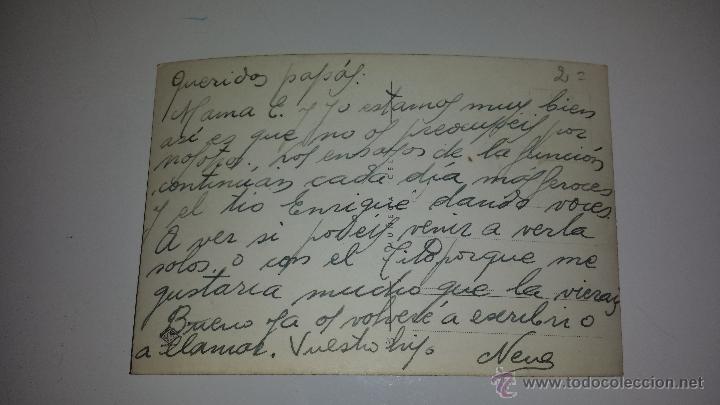 Queridos papás: 2=
Mama E. y yo estamos muy bien
así es que no os preocupéis por
nosotros. Los ensayos de la función
continúan cada día mas feroces
y el tio Enrique dando voces.
A ver si podeis venir a verla
solos o con el Tito porque me
gustaria mucho que la vierais
Bueno ya os volveré a escribir o
a llamar. Vuestro hijo
www.todocoleccion.net